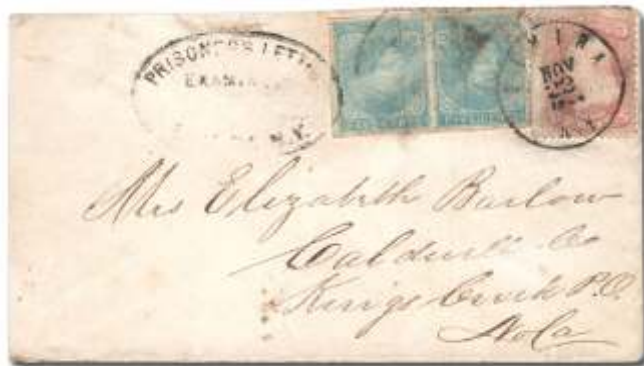 PRISONER'S LETTER
EXAMINED
N.Y.
NOV
22
N.Y.
Mrs Elizabeth Barlow
Caldwell Co
Kings Creek P.O.
No Ca